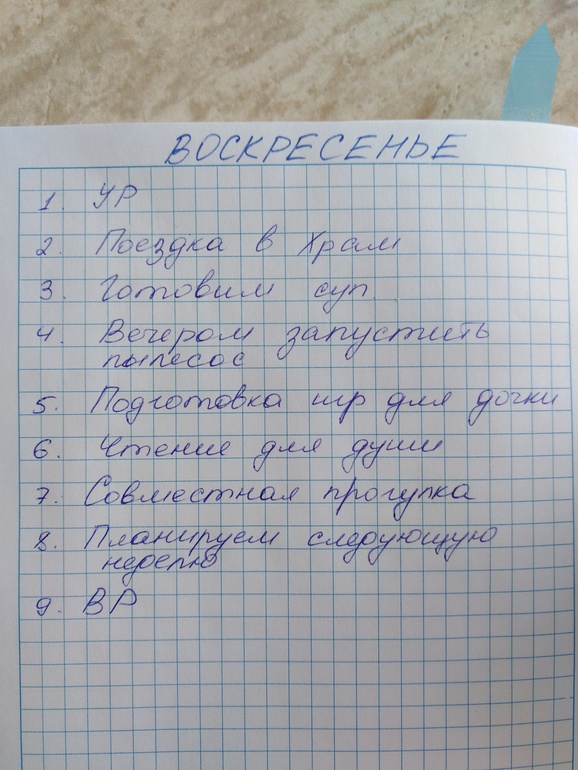 ВОСКРЕСЕНЬЕ
1. УР
2. Поездка в Храм
3. Готовим суп.
4. Вечером запустить
пылесос
5. Подготовка игр для дочки
6. Чтение для души
7. Совместная прогулка
8. Планируем следующую
неделю
9. ВР